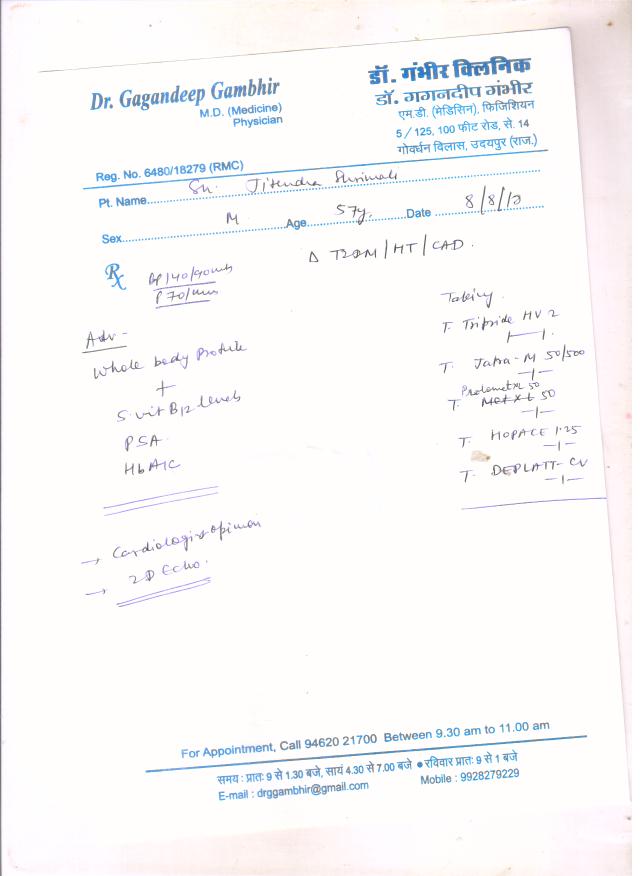 Dr. Gagandeep Gambhir
M.D. (Medicine)
Physician
डॉ. गंभीर क्लिनिक
डॉ. गगनदीप गंभीर
एम.डी. (मेडिसिन), फिजिशियन
5 / 125, 100 फीट रोड, से. 14
गोवर्धन विलास, उदयपुर (राज.)
Reg. No. 6480/18279 (RMC)
Pt. Name Sh. Jitendra Shrimali
Sex M Age 57y. Date 8/8/19
Rx BP 140/90
P 70/min
Δ T2DM / HT / CAD.
Adv -
Whole body Profile
+
S. vit B12 levels
PSA
HbA1C
→ Cardiologist opinion
→ 2D Echo.
Taking.
T. Tripride HV 2
T. Jatra-M 50/500
Prolomet XL 50
T. Met XL 50
T. HOPACE 1.25
T. DEPLATT-CV
For Appointment, Call 94620 21700 Between 9.30 am to 11.00 am
समय : प्रातः 9 से 1.30 बजे, सायं 4.30 से 7.00 बजे ● रविवार प्रातः 9 से 1 बजे
E-mail : drggambhir@gmail.com Mobile : 9928279229